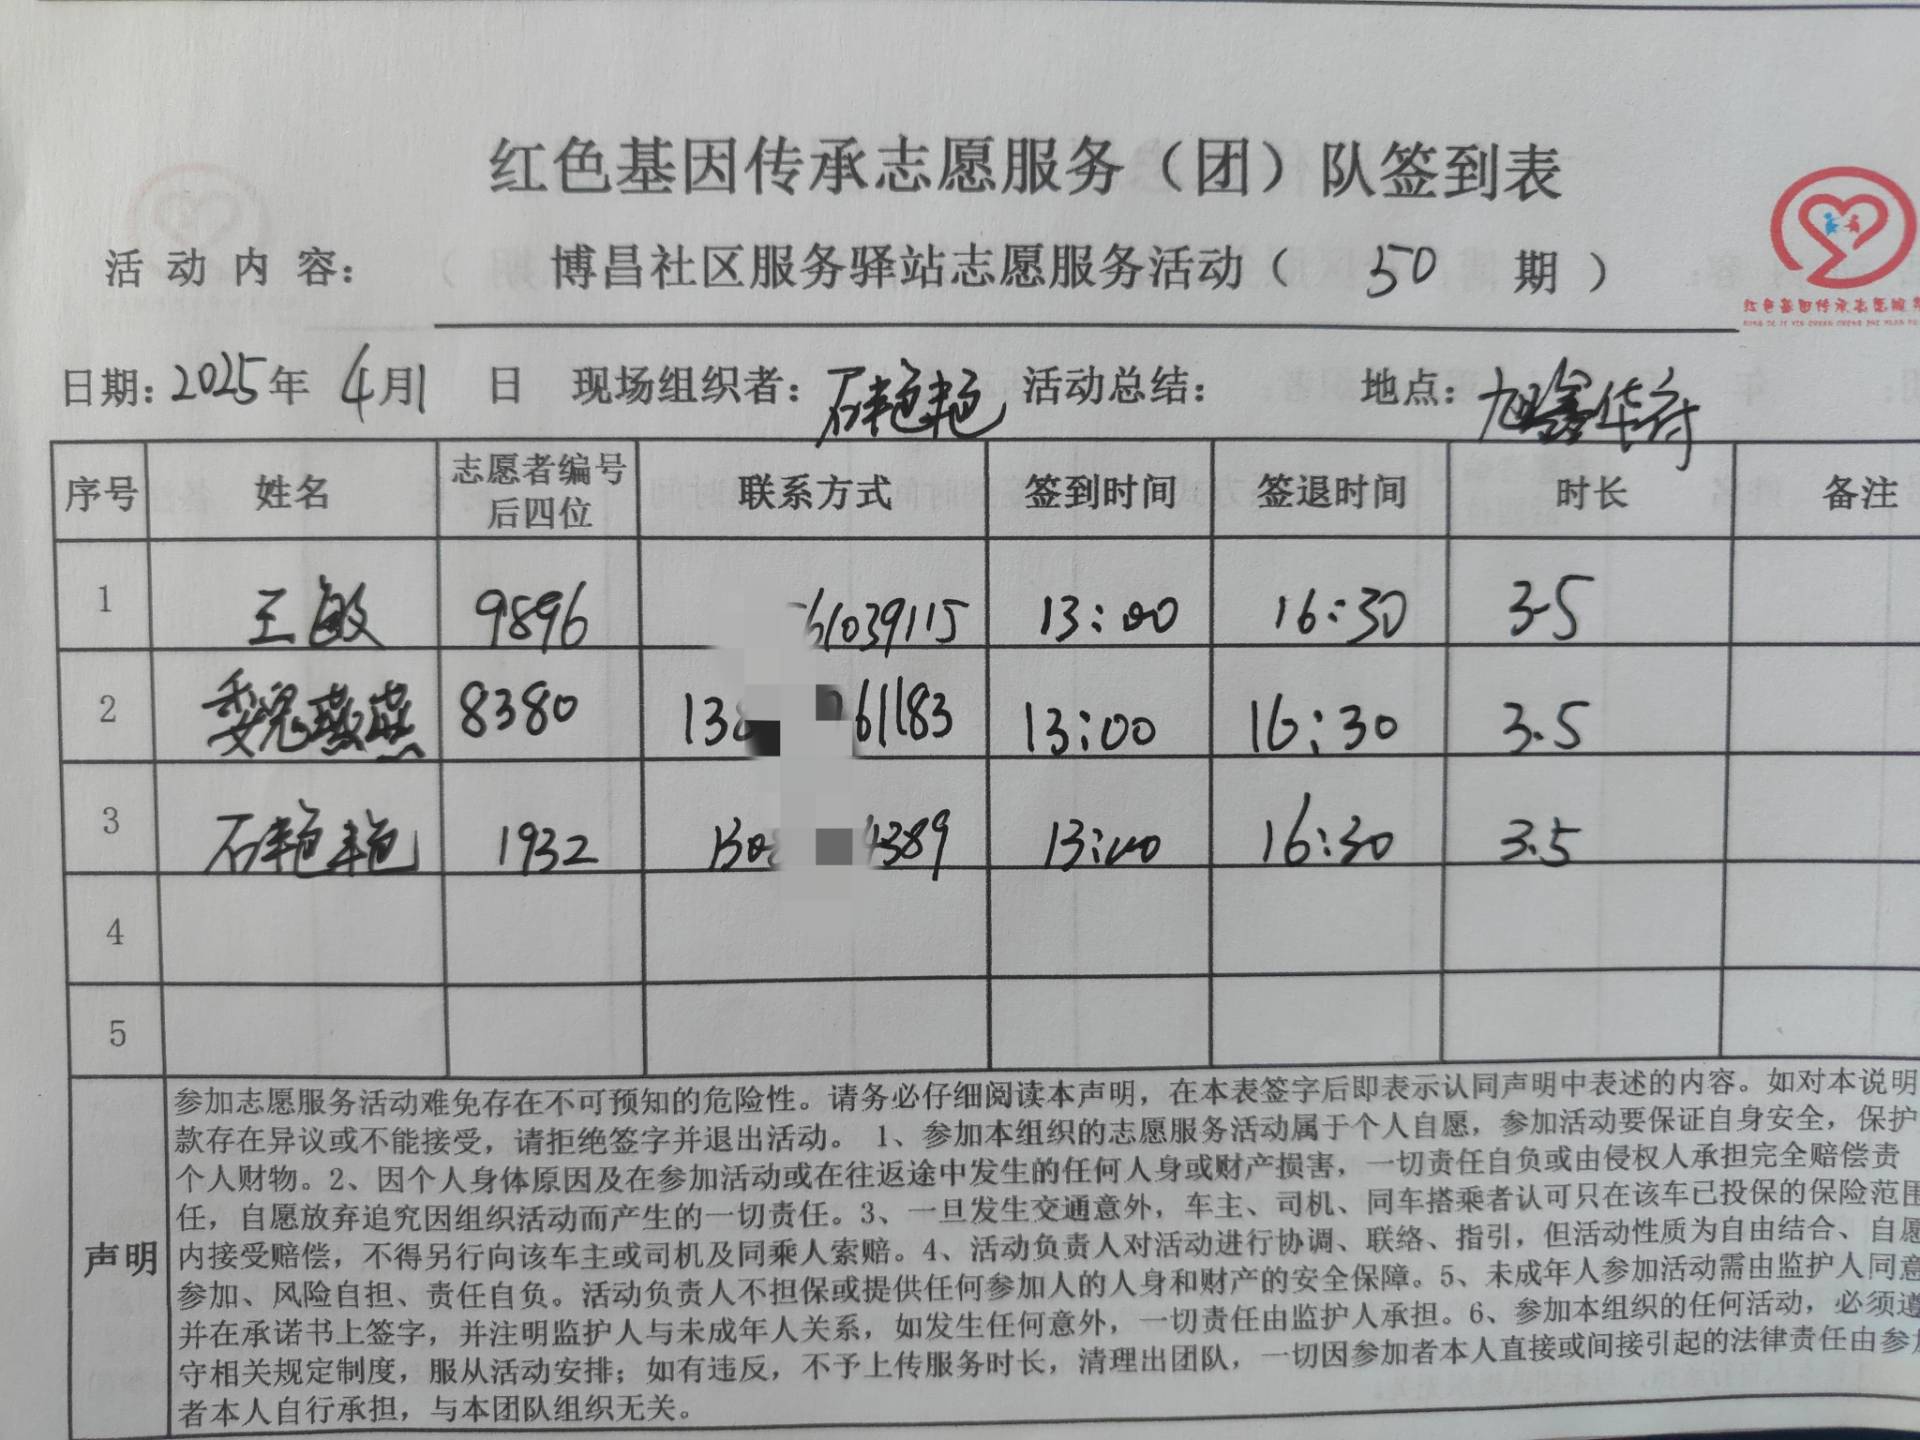 红色基因传承志愿服务（团）队签到表
活动内容： 博昌社区服务驿站志愿服务活动（ 50 期 ）
红色基因传承志愿服
日期：2025年 4月1 日 现场组织者：石艳艳 活动总结： 地点：旭鑫华府
序号 姓名 志愿者编号后四位 联系方式 签到时间 签退时间 时长 备注
1 王敏 9896 61039115 13:00 16:30 3.5
2 魏燕燕 8380 138 61183 13:00 16:30 3.5
3 石艳艳 1932 130 4389 13:00 16:30 3.5
4
5
声明
参加志愿服务活动难免存在不可预知的危险性。请务必仔细阅读本声明，在本表签字后即表示认同声明中表述的内容。如对本说明
款存在异议或不能接受，请拒绝签字并退出活动。 1、参加本组织的志愿服务活动属于个人自愿，参加活动要保证自身安全，保护
个人财物。2、因个人身体原因及在参加活动或在往返途中发生的任何人身或财产损害，一切责任自负或由侵权人承担完全赔偿责
任，自愿放弃追究因组织活动而产生的一切责任。3、一旦发生交通意外，车主、司机、同车搭乘者认可只在该车已投保的保险范围
内接受赔偿，不得另行向该车主或司机及同乘人索赔。4、活动负责人对活动进行协调、联络、指引，但活动性质为自由结合、自愿
参加、风险自担、责任自负。活动负责人不担保或提供任何参加人的人身和财产的安全保障。5、未成年人参加活动需由监护人同意
并在承诺书上签字，并注明监护人与未成年人关系，如发生任何意外，一切责任由监护人承担。6、参加本组织的任何活动，必须遵
守相关规定制度，服从活动安排；如有违反，不予上传服务时长，清理出团队，一切因参加者本人直接或间接引起的法律责任由参加
者本人自行承担，与本团队组织无关。